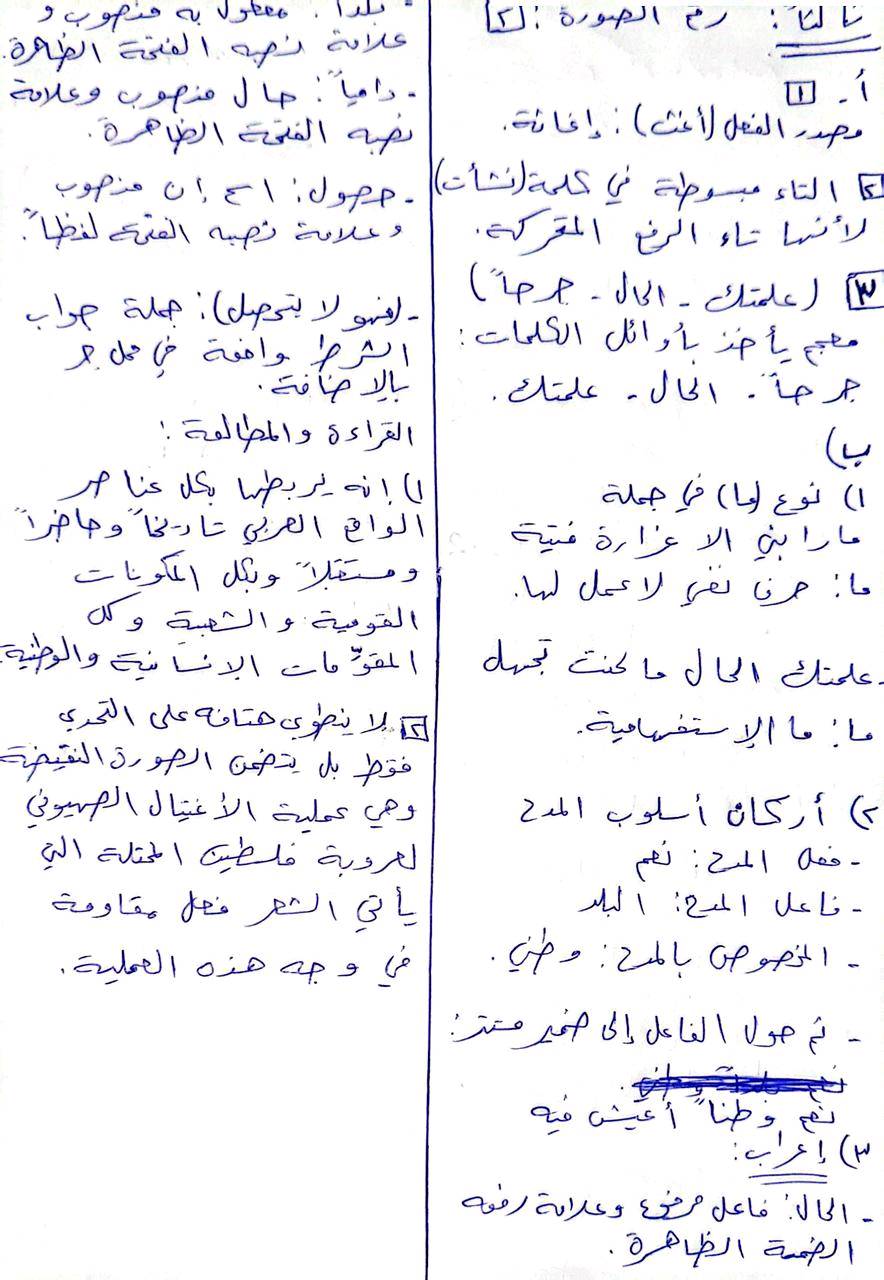 ثالثاً: رقم الصورة: [2]
أ- [1]
مصدر الفعل (أغث): إغاثة.
[2] التاء مبسوطة في كلمة (نشأت)
لأنها تاء الرفع المتحركة.
[3] (علمتك - الحال - جرحاً)
معجم يأخذ بأوائل الكلمات:
جرحاً - الحال - علمتك.
ب)
1) نوع (ما) في جملة
ما رابني الا غزارة فتية
ما: حرف نفي لا عمل لها.
علمتك الحال ما كنت تجهل
ما: ما الإستفهامية.
2) أركان أسلوب المدح
- فعل المدح: نعم
- فاعل المدح: البلد
- المخصوص بالمدح: وطني.
- ثم حول الفاعل إلى ضمير مستتر:
نعم وطناً أعيش فيه
3) إعراب:
- الحال: فاعل مرفوع وعلامة رفعه
الضمة الظاهرة.
بلداً: مفعول به منصوب و
علامة نصبه الفتحة الظاهرة.
- دامياً: حال منصوب وعلامة
نصبه الفتحة الظاهرة.
- حصول: اسم إن منصوب
وعلامة نصبه الفتحة لفظاً.
- (فهو لا يتحصل): جملة جواب
الشرط واقعة في محل جر
بالإضافة.
القراءة والمطالعة:
1) إنه يربطها بكل عناصر
الواقع العربي تاريخاً وحاضراً
ومستقبلاً وبكل المكونات
القومية والشعبية وكل
المقوّمات الإنسانية والوطنية.
[2] لا ينطوي هتافه على التحدي
فقط بل يتضمن الصورة النقيضة
وهي عملية الأغتيال الصهيوني
لعروبة فلسطين المحتلة التي
يأتي الشعر فعل مقاومة
في وجه هذه العملية.